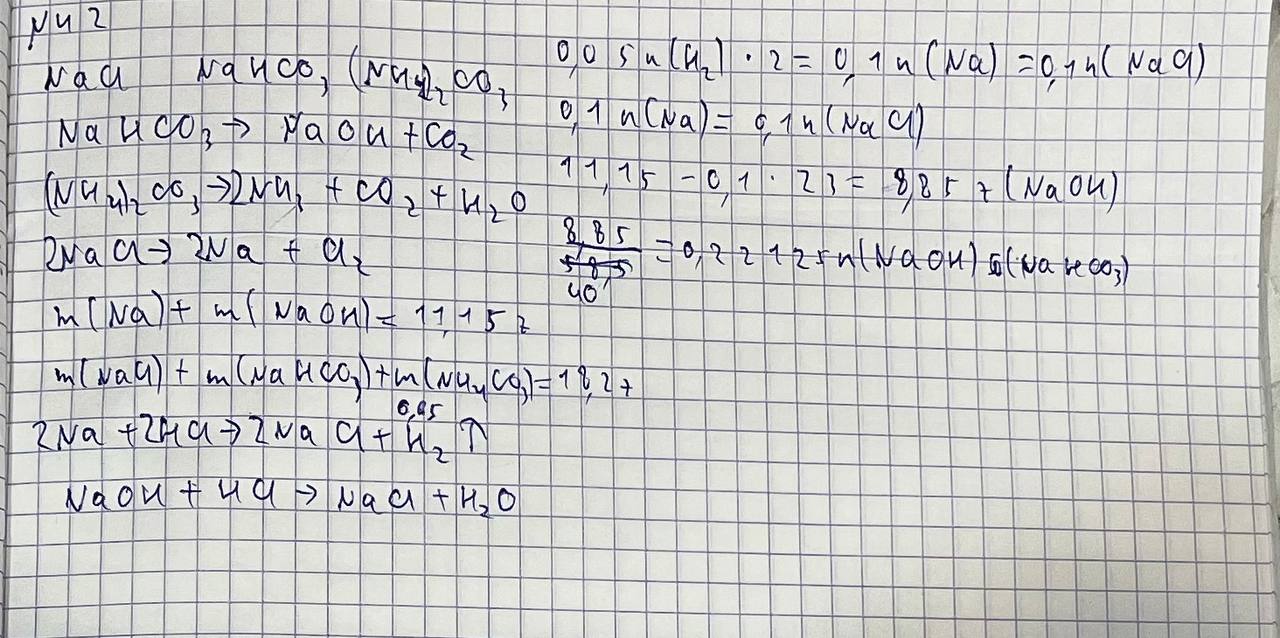 N42
NaCl NaHCO₃ (NH₄)₂CO₃
NaHCO₃ → NaOH + CO₂
(NH₄)₂CO₃ → 2NH₃ + CO₂ + H₂O
2NaCl → 2Na + Cl₂
m(Na) + m(NaOH) = 11,15 г
m(NaCl) + m(NaHCO₃) + m(NH₄CO₃) = 18,2 г
0,05
2Na + 2HCl → 2NaCl + H₂ ↑
NaOH + HCl → NaCl + H₂O
0,05 n(H₂) · 2 = 0,1 n(Na) = 0,1 n(NaCl)
0,1 n(Na) = 0,1 n(NaCl)
11,15 - 0,1 · 23 = 8,85 г (NaOH)
8,85
58,5 = 0,22125 n(NaOH) (NaHCO₃)
40